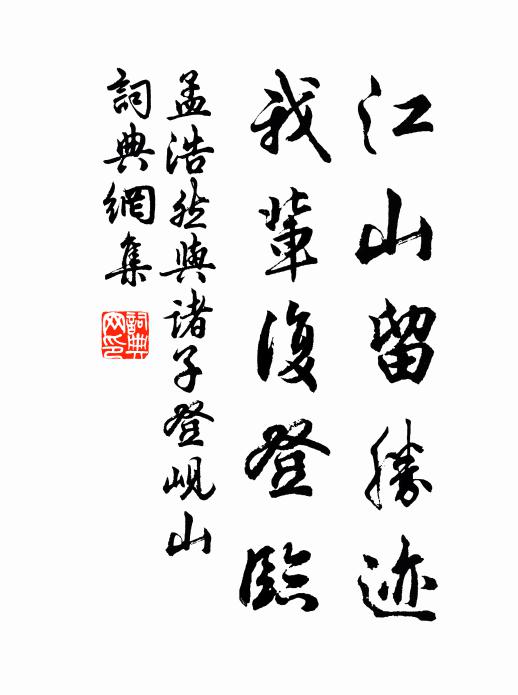 江山留勝迹
我輩復登臨
孟浩然與諸子登峴山
詞典網集
詞典網印